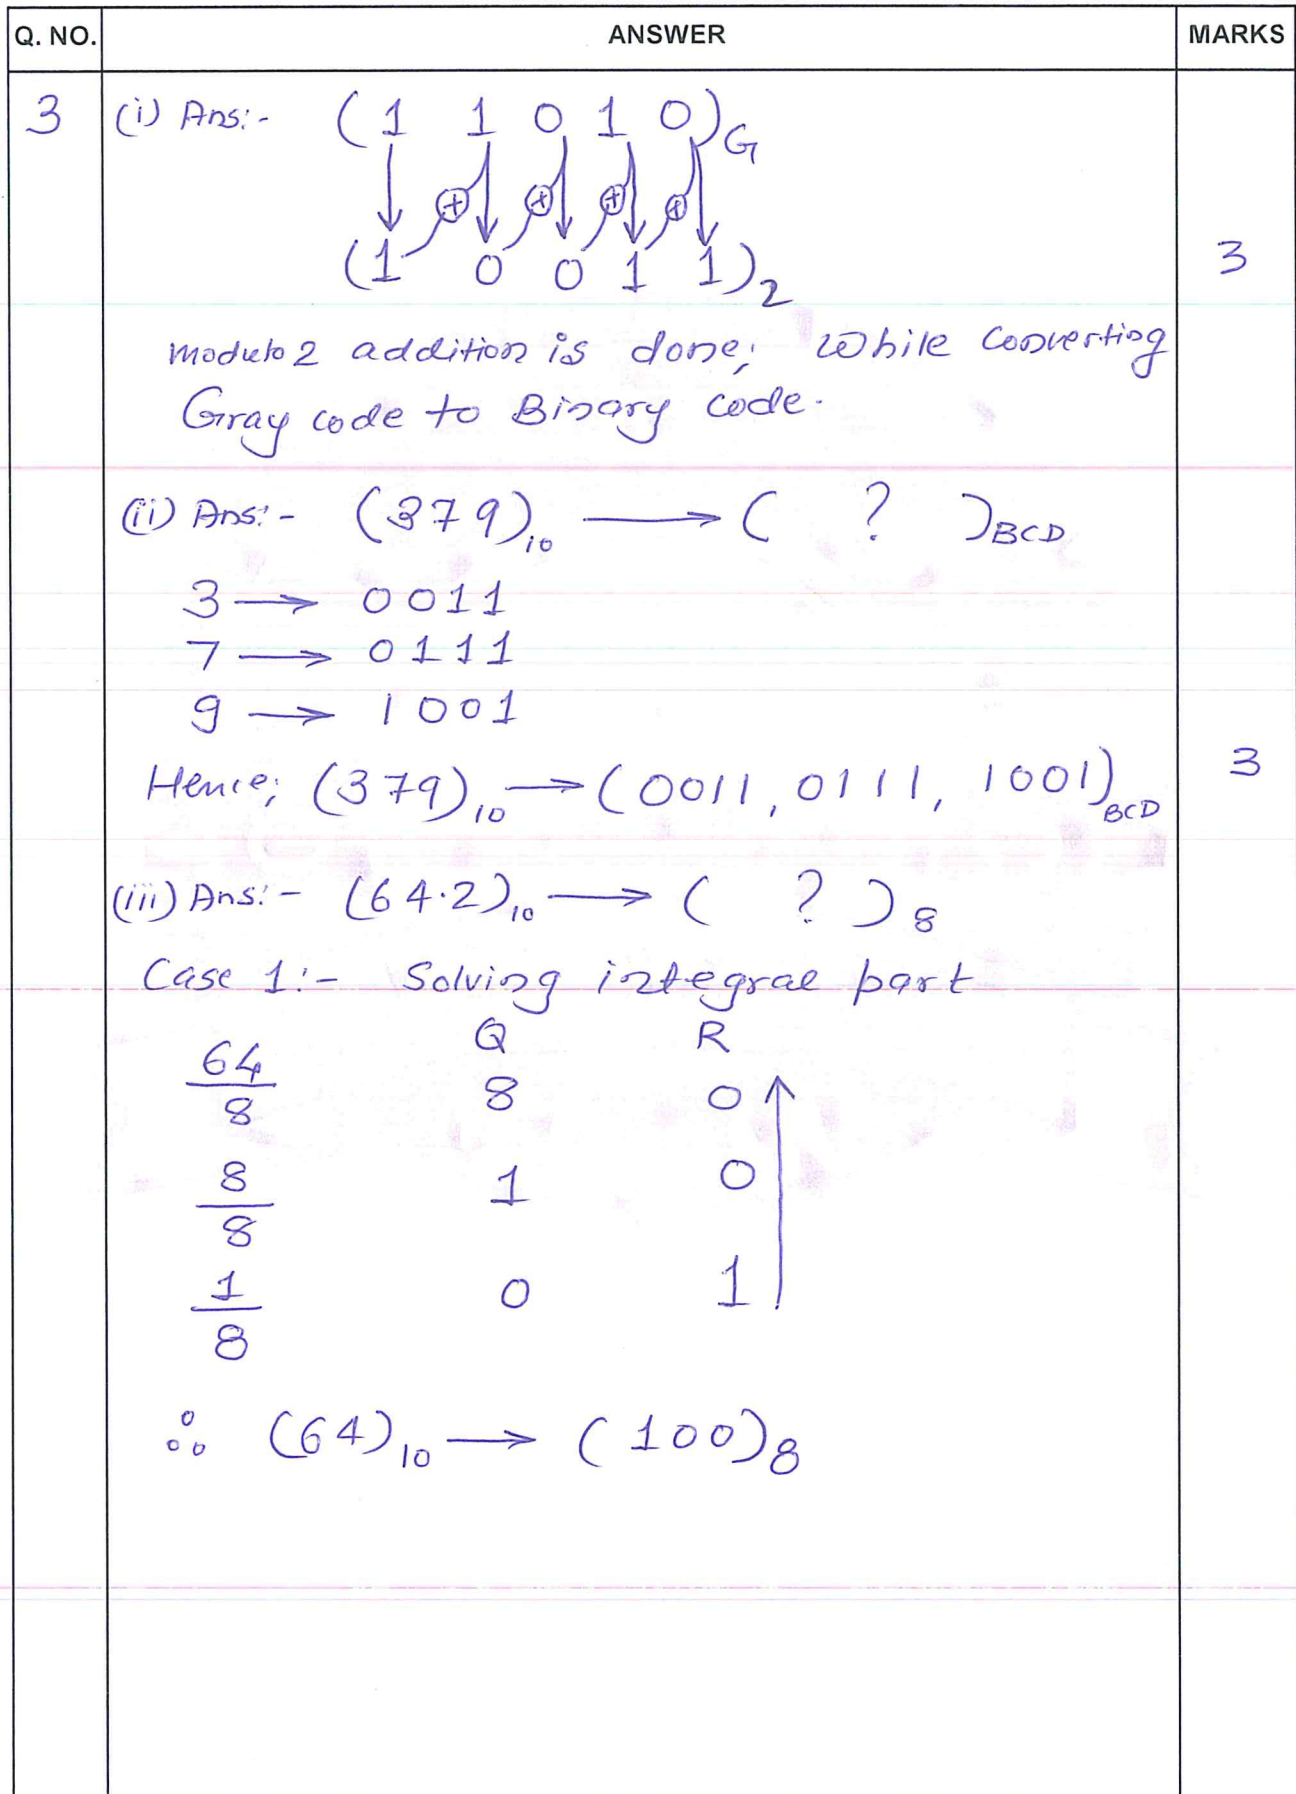 Q. NO. ANSWER MARKS
3 (i) Ans:- (1 1 0 1 0)G
⊕ ⊕ ⊕ ⊕
(1 0 0 1 1)2 3
Modulo 2 addition is done; while converting
Gray code to Binary code.
(ii) Ans:- (379)10 → ( ? )BCD
3 → 0011
7 → 0111
9 → 1001
Hence; (379)10 → (0011, 0111, 1001)BCD 3
(iii) Ans:- (64.2)10 → ( ? )8
Case 1:- Solving integral part
Q R
64/8 8 0
8/8 1 0
1/8 0 1
∴ (64)10 → (100)8